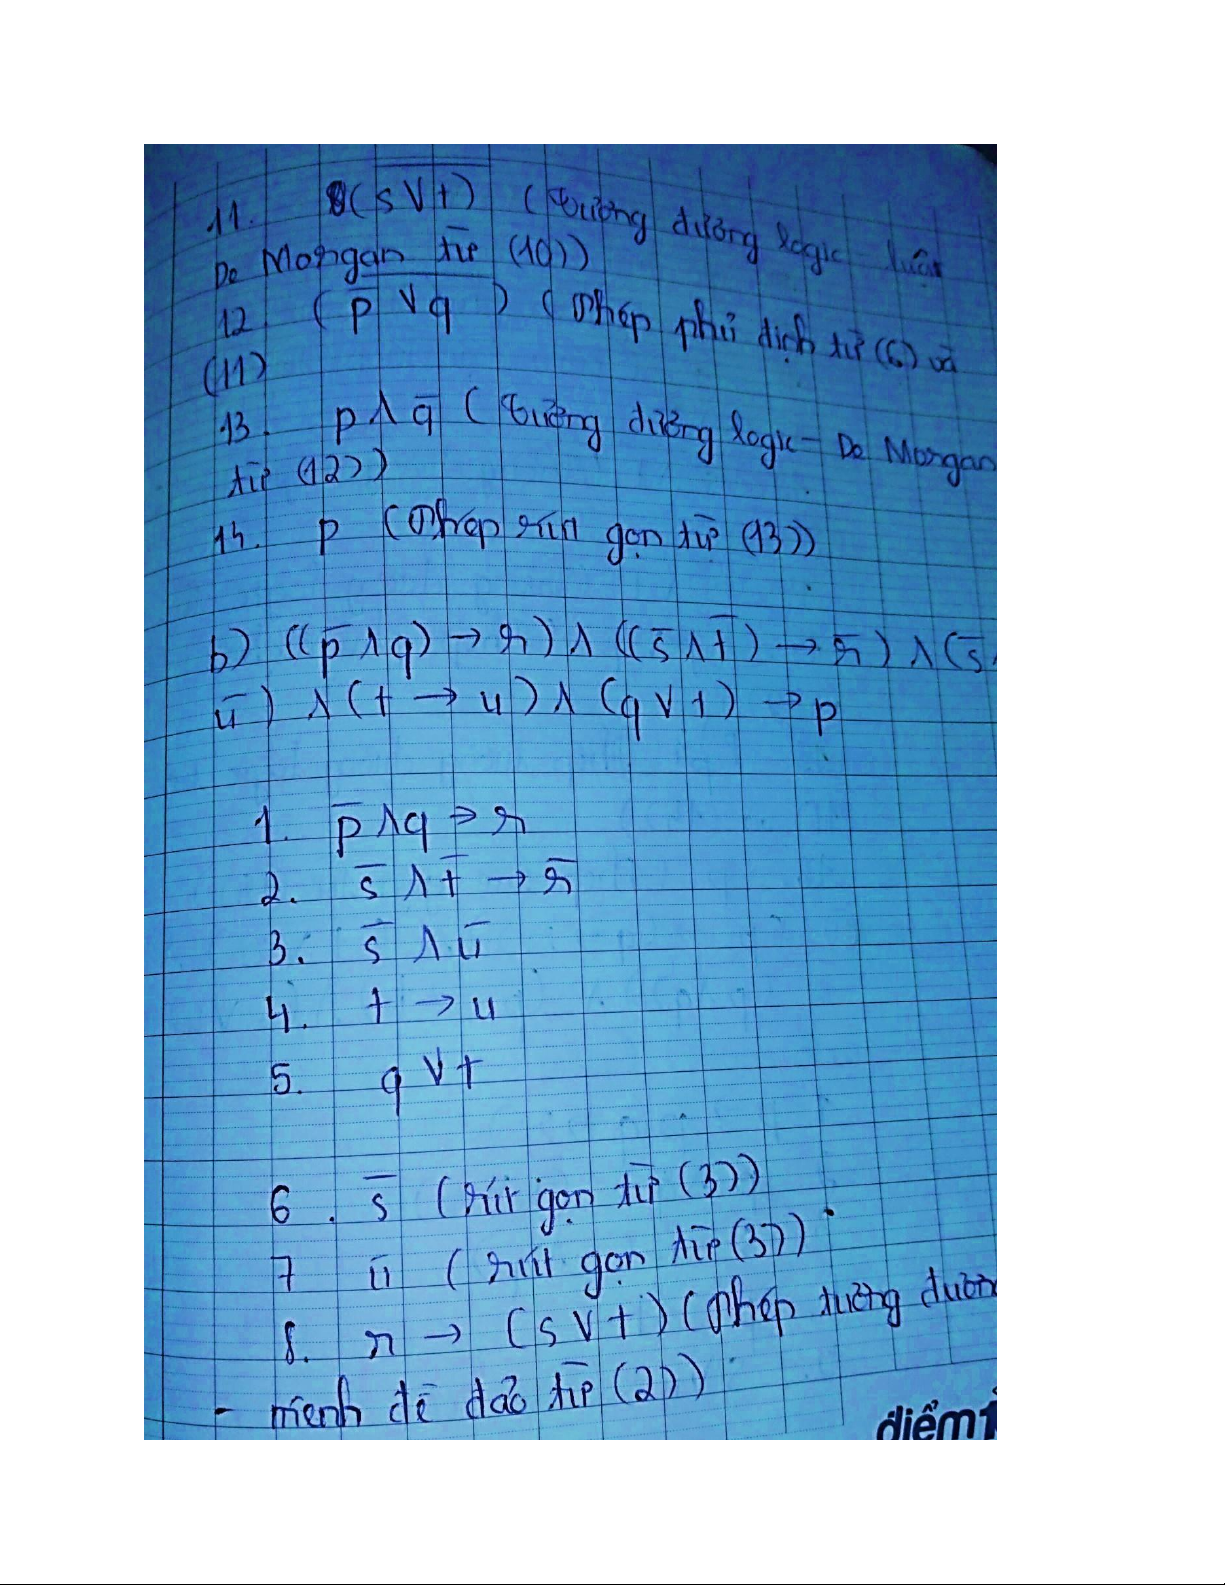 11. (s̅ ̅∨̅ ̅t̅) (tương đương logic luật
De Morgan từ (10))
12. (p̅ ∨ q)̅ (Phép phủ định từ (6) và
(11)
13. p ∧ q̅ (tương đương logic – De Morgan
từ (12))
14. p (Phép rút gọn từ (13))
b) ((p̅ ∧ q) → r) ∧ ((s̅ ∧ t̅) → r̅) ∧ (s̅ ∧
u̅) ∧ (t → u) ∧ (q ∨ t) → p
1. p̅ ∧ q → r
2. s̅ ∧ t̅ → r̅
3. s̅ ∧ u̅
4. t → u
5. q ∨ t
6. s̅ (rút gọn từ (3))
7 u̅ (rút gọn từ (3))
8. r → (s ∨ t) (Phép tương đương
- mệnh đề đảo từ (2))
điểm